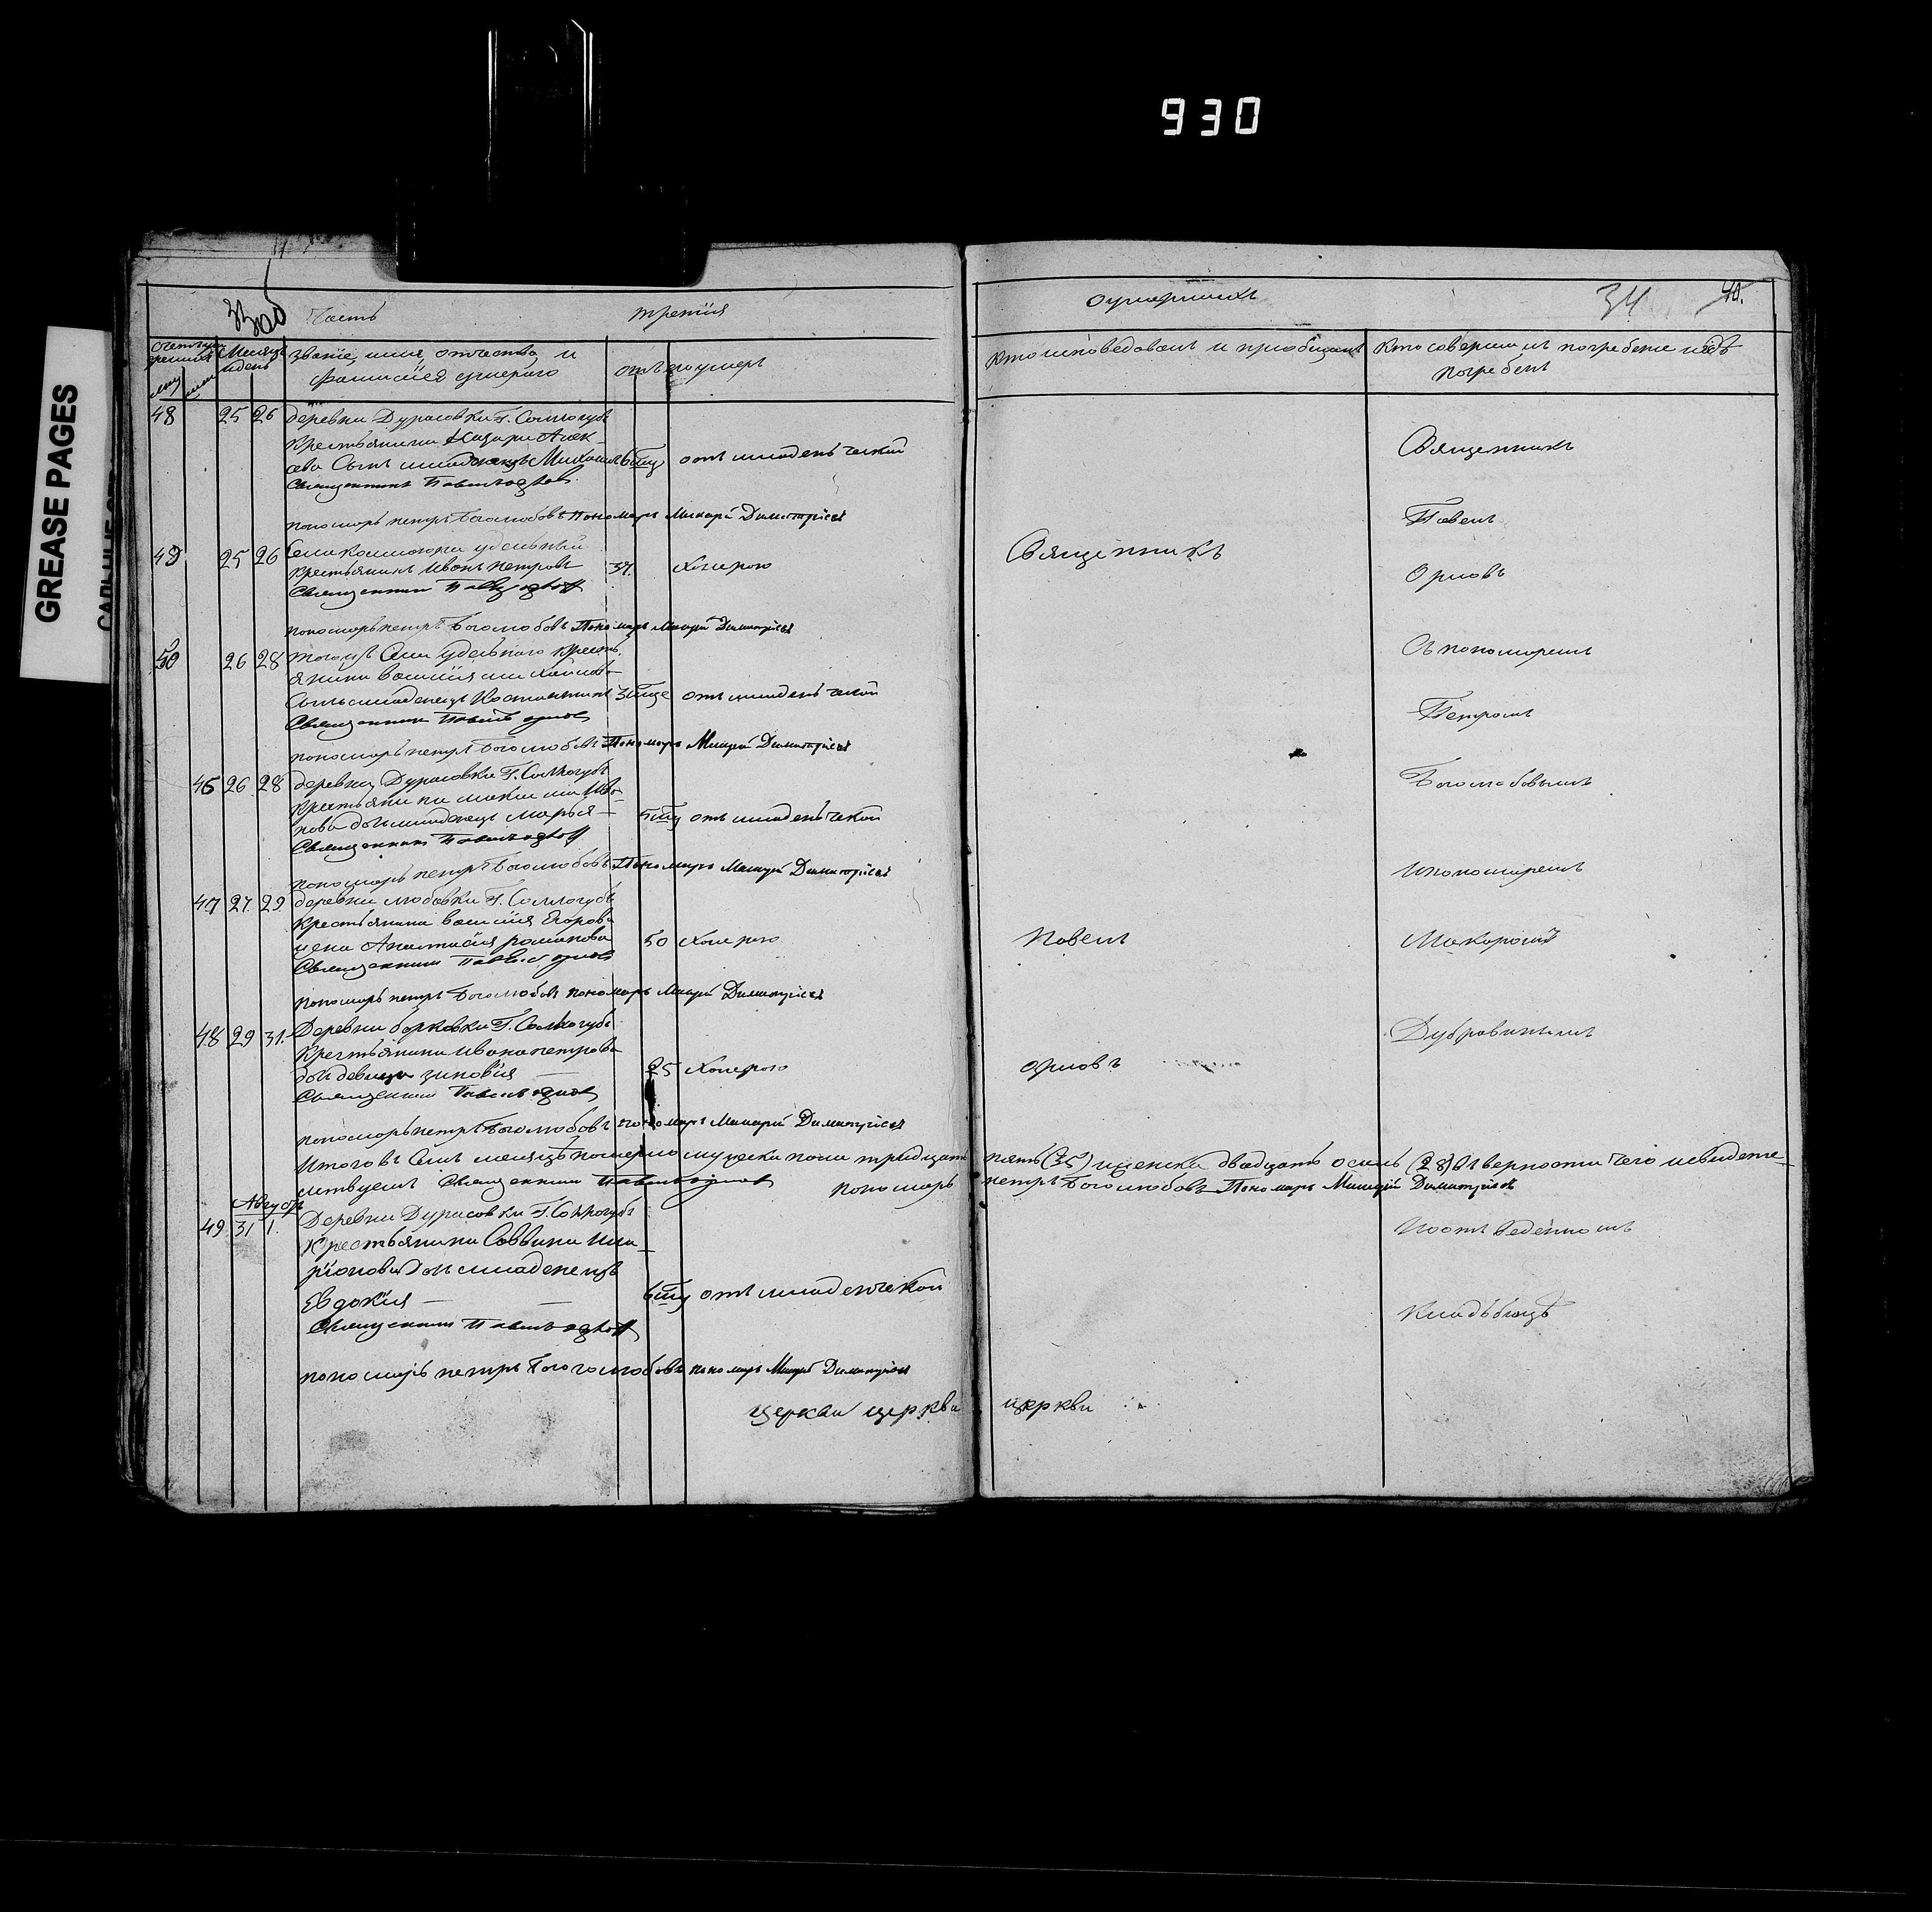 930
GREASE PAGES
33об
Часть третiя
о умершихъ
34 40.
Месяцъ и день
Званiе, имя, отчество, и фамилiя умершаго
отъ чего умеръ
Кто исповедовалъ и прiобщалъ
Кто совершалъ погребенiе и где погребенъ
48 25 26 деревни Дурасовки Г. Соллогубъ
крестьянина Алек-
ева Сынъ младенецъ Михаилъ 6 отъ младенческой
Священникъ Павелъ Орловъ
пономарь петръ Боголюбовъ Пономарь Макарiй Димитрiевъ
49 25 26 Села удельный
крестьянинъ Иванъ петровъ 37. Холерою
Священникъ Павелъ Орловъ
пономарь петръ Боголюбовъ Пономарь Макарiй Димитрiевъ
50 26 28 тогожъ Села удельнаго кресть
янина василiя михайлова
Сынъ младенецъ Константинъ 3 отъ младенческой
Священникъ Павелъ Орловъ
пономарь петръ Боголюбовъ Пономарь Макарiй Димитрiевъ
46 26 28 деревни Дурасовки Г. Соллогубъ
Крестьянина максима Ива-
нова дочь младенецъ марья 5 отъ младенческой
Священникъ Павелъ Орловъ
пономарь петръ Боголюбовъ Пономарь Макарiй Димитрiевъ
47 27 29 деревни любовки Г. Соллогубъ
Крестьянина василiя Егорова
жена Анастасiя романова 50 Холерою
Священникъ Павелъ Орловъ
пономарь петръ Боголюбовъ пономарь Макарiй Димитрiевъ
48 29 31. Деревни борковки Г. Соллогубъ
Крестьянина Ивана петрова
дочь девица зиновiя 25 Холерою
Священникъ Павелъ Орловъ
пономарь петръ Боголюбовъ пономарь Макарiй Димитрiевъ
Итого въ Семъ месяцъ померло мужеска пола тридцать пять (35) и женска двадцать осемь (28) въ верности чего и свидете-
льствуемъ Священникъ Павелъ Орловъ пономарь петръ Боголюбовъ Пономарь Макарiй Димитрiевъ
Августъ
49. 31 1. Деревни Дурасовки Г. Соллогубъ
Крестьянина Саввина Ила-
рiонова дочь младенецъ
Евдокiя 6 отъ младенческой
Священникъ Павелъ Орловъ
пономарь петръ Боголюбовъ пономарь Макарiй Димитрiевъ
Церкви церкви
Священникъ
Павелъ
Орловъ
церкви
Священникъ
Павелъ
Орловъ
Съ пономаремъ
Петромъ
Боголюбовымъ
и пономаремъ
Макарiемъ
Дубровинымъ
На отведенномъ
Кладбище